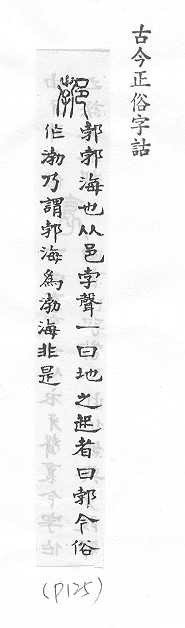 古今正俗字詁
郣
郣郣海也从邑孛聲一曰地之起者曰郣今俗
作渤乃謂郣海爲渤海非是
(P125)